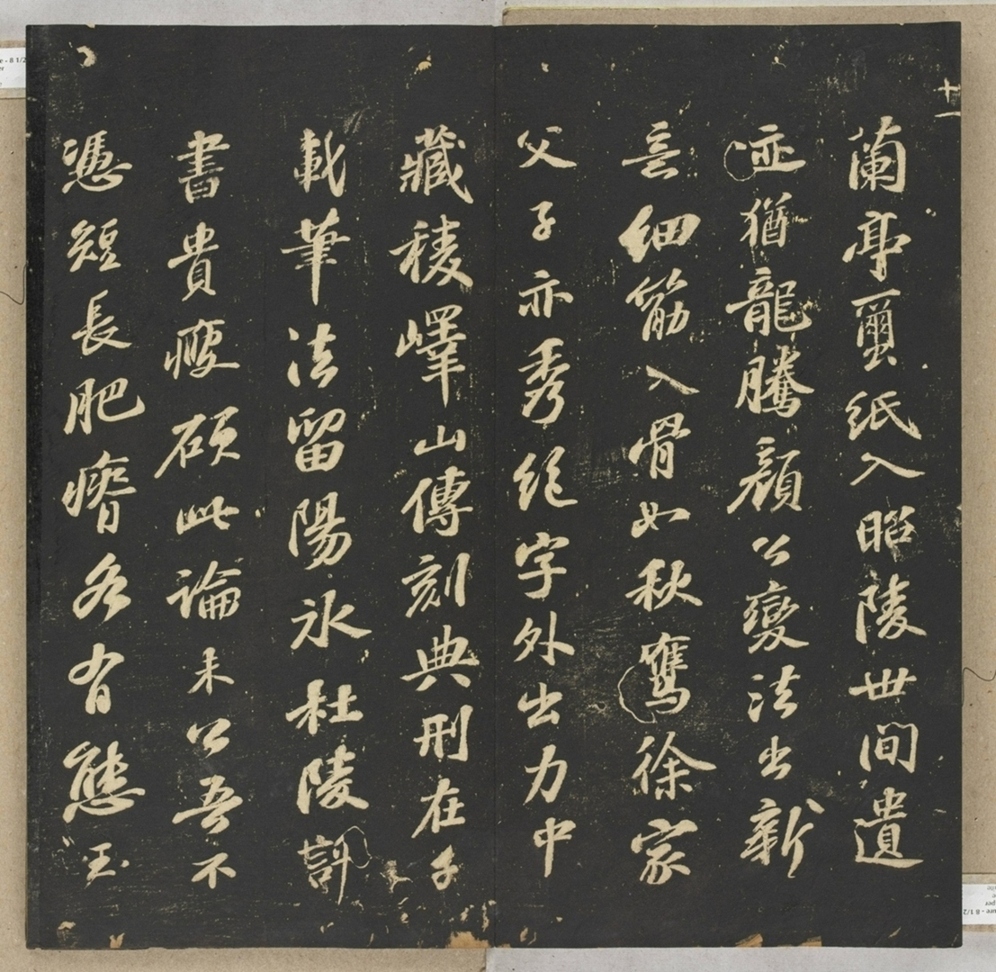 十一
蘭亭蠒紙入昭陵世間遺
迹猶龍騰顏公變法出新
意細筋入骨如秋鷹徐家
父子亦秀絕字外出力中
藏稜嶧山傳刻典刑在千
載筆法留陽氷杜陵評
書貴瘦硬此論未公吾不
憑短長肥瘠各有態玉